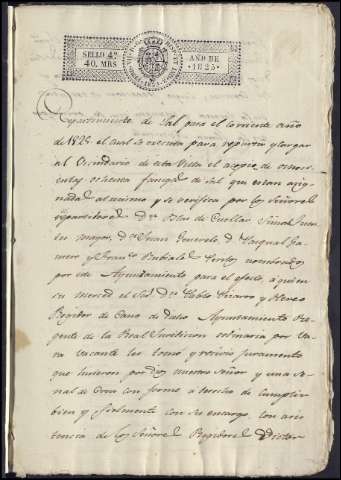 SELLO 4º
40. MRS
AÑO DE
1825
Repartimiento de Sal para el corriente año
de 1825 el cual se executa para repartir y cargar
al Vecindario de esta Villa el acopio de
y ochenta fanegas de Sal que estan asig
nadas al mismo y se verifica por los Señores
repartidores Dn. Blas de Cuellar
mayor, Dn. Juan Dn. Pasqual
y Franco. nombrados
por este Ayuntamiento para el efecto, a quien
su merced el Sor. Dn. Pablo Pizarro y
Regidor de Cano de dicho Ayuntamiento Re
gente de la Real Juridicion ordinaria por
vacante les tomó y recivio juramento
que hicieron por Dios nuestro Señor y una se
ñal de Cruz con forme a derecho de cumplir
bien y fielmente con su encargo con asis
tencia de los Señores Regidores